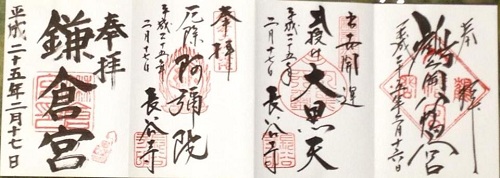 奉拝
鶴岡八幡宮
平成二十五年二月十六日
出世開運
出世大黒天
平成二十五年
二月十七日
長谷寺
奉拝
厄除阿彌陀
平成二十五年
二月十七日
長谷寺
奉拝
鎌倉宮
平成二十五年二月十七日